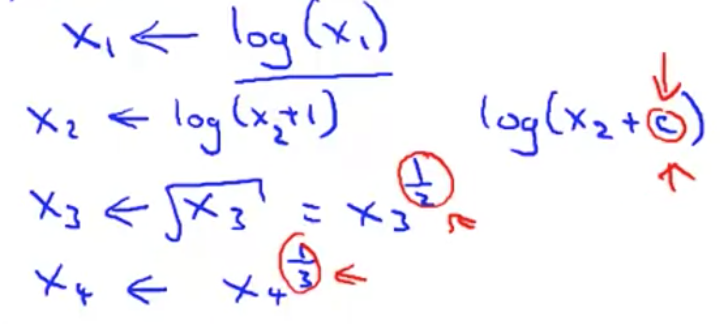 x₁ ← log(x₁)
x₂ ← log(x₂+1) log(x₂+c)
x₃ ← √x₃ = x₃^(1/2)
x₄ ← x₄^(1/3)